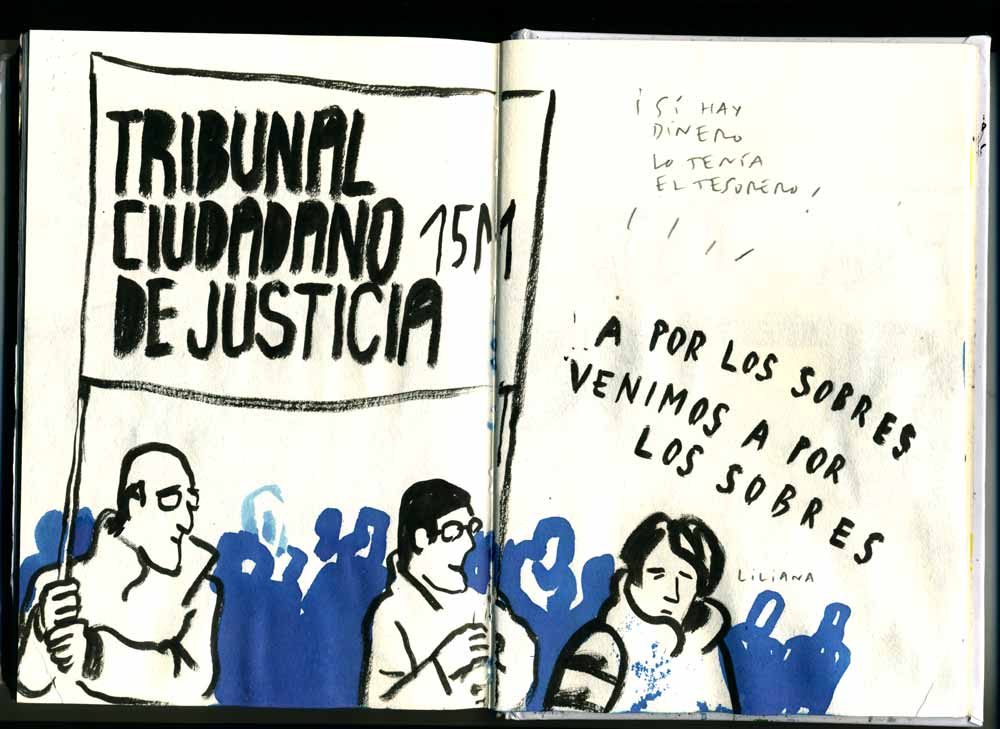 TRIBUNAL
CIUDADANO 15M
DE JUSTICIA
¡SÍ HAY
DINERO
LO TENÍA
EL TESORERO!
A POR LOS SOBRES
VENIMOS A POR
LOS SOBRES
LILIANA